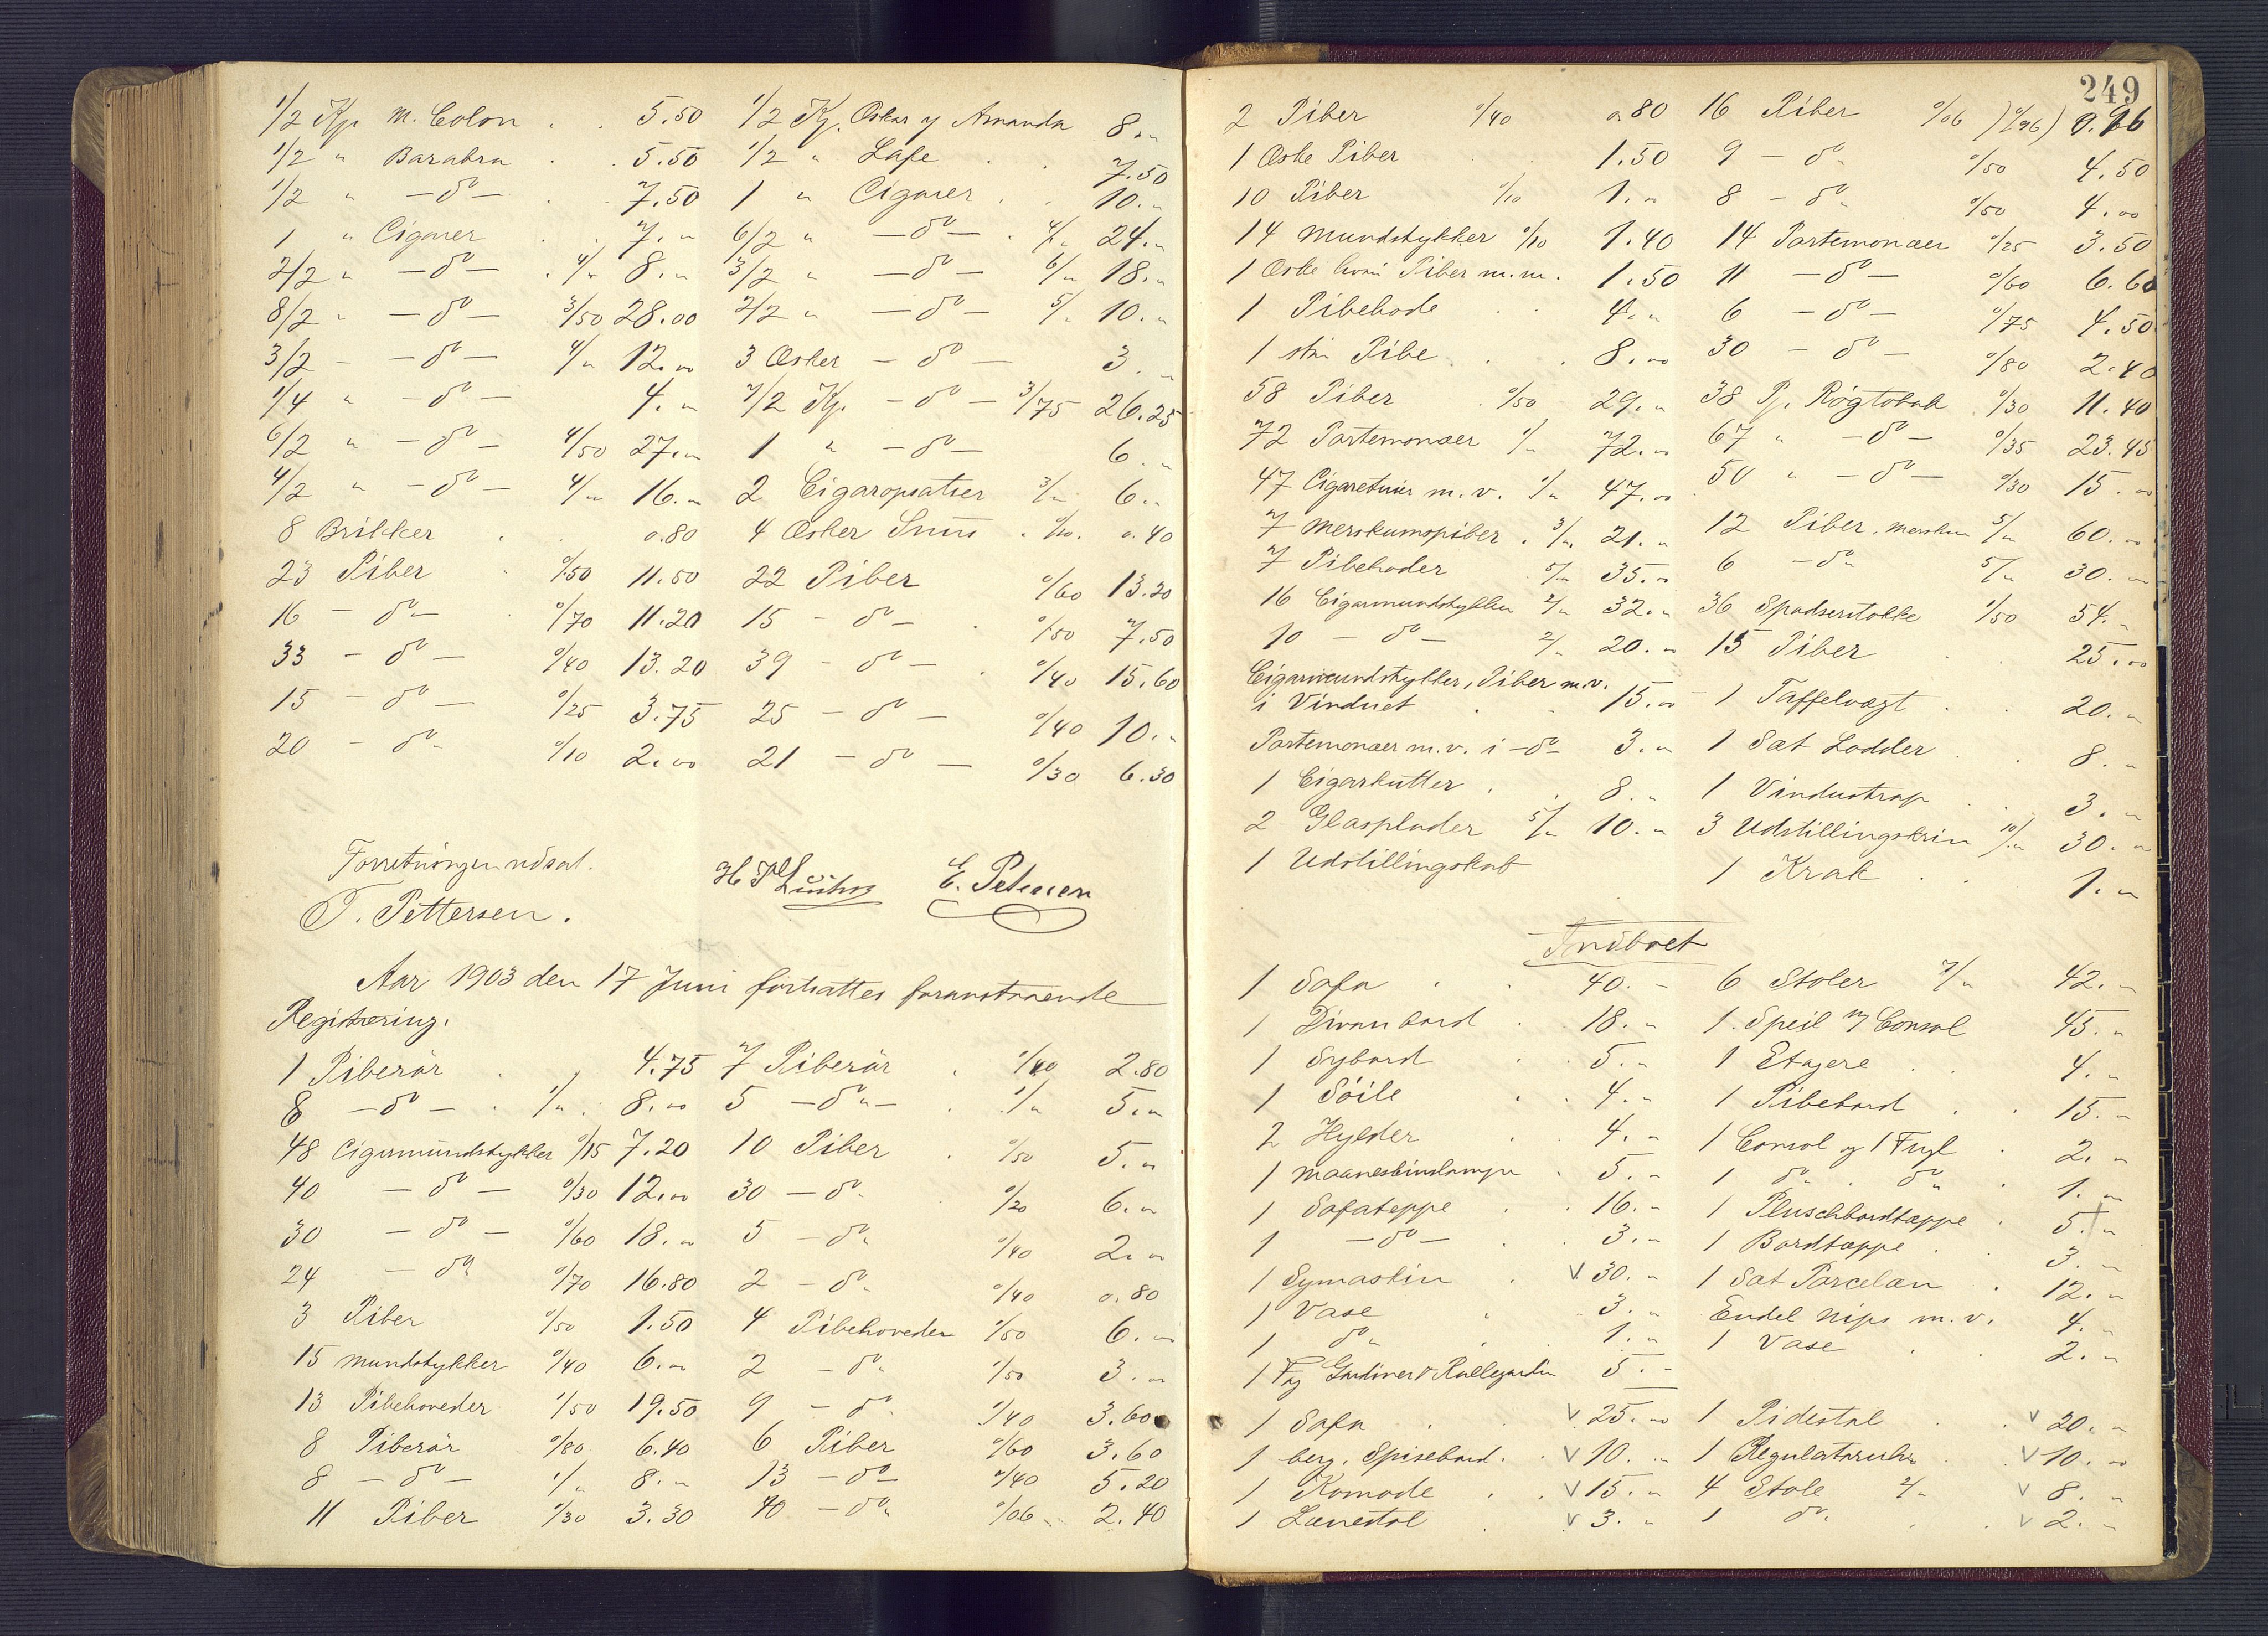 1/2 Kp M. Colon . . 5.50 1/2 Kp. Oskar og Amanda 8."
1/2 " Barabra . . 5.50 1/2 " Lafe . . 7.50
1/2 " – do – . 7.50 1 " Cigarer . . 10."
1 " Cigarer . . 7." 6/2 " – do – . 4/" 24."
2/2 " – do – . 4/" 8." 3/2 " – do – 6/" 18."
8/2 " – do – 3/50 28.00 2/2 " – do – 5/" 10."
3/2 – – do – 4/" 12.00 3 Æsker – do – 3."
1/4 " – do – 4." 7/2 Kp. – do – 3/75 26.25
6/2 " – do – 4/50 27." 1 " – do – 6."
4/2 " – do – 4/" 16." 2 Cigaropsatser 3/" 6."
8 Brikker . . 0.80 4 Æsker Snus . 0/10. 0.40
23 Piber . 0/50 11.50 22 Piber 0/60 13.20
16 – do – . 0/70 11.20 15 – do – . 0/50 7.50
33 – do – 0/40 13.20 39 – do – . 0/40 15.60
15 – do – 0/25 3.75 25 – do – 0/40 10."
20 – do " 0/10 2.00 21 – do – 0/30 6.30
Forretningen udsat.
T. Pettersen. E. Petersen
Aar 1903 den 17 Juni fortsattes foranstaaende
Registrering.
1 Piberør . , 4.75 7 Piberør . 0/40 2.80
8 – do – . 1/" . 8.00 5 – do " – . 1/" 5."
48 Cigarmundstykker 0/15 7.20 10 Piber . 0/50 5."
40 – do – 0/30 12.00 30 – do " 0/20 6."
30 – do – 0/60 18." 5 – do " 0/40 2."
24 – do " 0/70 16.80 2 – do " 0/40 0.80
3 Piber 0/50 1.50 4 Pibehoveder 1/50 6."
15 Mundstykker 0/40 6." 2 – do " 1/50 3."
13 Pibehoveder 1/50 19.50 9 – do " 0/40 3.60
8 Piberør 0/80 6.40 6 Piber 0/60 3.60
8 – do – 1/" 8." 13 – do – 0/40 5.20
11 Piber 0/30 3.30 40 – do " 0/06 2.40
249
2 Piber 0/40 0.80 16 Piber 0/06 )0/96) 0.96
1 Æske Piber . . 1.50 9 – do " 0/50 4.50
10 Piber 0/10 1." 8 – do " 0/50 4.00
14 Mundstykker 0/10 1.40 14 Portemonæer 0/25 3.50
1 Æske hvori Piber m.m. 1.50 11 – do – 0/60 6.60
1 Pibehode . . 4." 6 – do – 0/75 4.50
1 stor Pibe . . . 8.00 30 – do – 0/80 2.40
58 Piber . 0/50 29." 38 Pj. Røgtobak . 0/30 11.40
72 Portemonæer 1/" 72.00 67 " – do – 0/35 23.45
47 Cigaretuier m.v. 1/" 47.00 . 50 " – do – 0/30 15.00
7 Merskumspiber . 3/" 21." 12 Piber. merskum 5/" 60.00
7 Pibehoder 5/" 35." 6 – do " 5/" 30."
16 Cigarmundstykker 2/" 32." 36 Spadserstokke 1/50 54."
10 – do – 2/" 20." 15 Piber . . 25.00
Cigarmundstykker, Piber m.v.
i Vinduet . . 15.00 – 1 Taffelvægt . . 20."
Portemonæer m.v. i – do – 3." 1 Sæt Lodder . . 8."
1 Cigarkutter . . 8." 1 Vindustrap . . 3."
2 Glasplader 5/" 10." 3 Udstillingskrin 10/" 30."
1 Udstillingskab 1 Krak . . 1."
Indboet
1 Sofa . . 40. – 6 Stoler 7/" 42."
1 Divanbord . 18." 1. Speil m/ Consol 45."
1 Sybord . 5." 1 Etagere . . 4."
1 Söile . . 4." 1 Pibebord . . 15."
2 Hylder . . 4." 1 Consol og 1 Fugl . 2."
1 Maaneskinslampe . 5." 1 do " . do " . 1."
1 Sofateppe . . 16." 1 Pluschbordtæppe . 5."
1 – do – . . 3." 1 Bordtæppe . . 3."
1 Symaskin . V 30." 1 Sæt Porcelæn . 12."
1 Vase " . 3." Endel Nips m.v. 4."
1 do " . 1." 1 Vase . . 2."
1 Fag Gardiner & Rullegardin 5. –
1 Sofa . . V 25.00 1 Pidestal . . V 20."
1 berg. Spisebord . . V 10." 1 Regulatoruhr . . V 10.00
1 Komode . . V 15." 4 Stole 2/" V 8."
1 Lænestol . . V 3." 1 do " . . V 2."